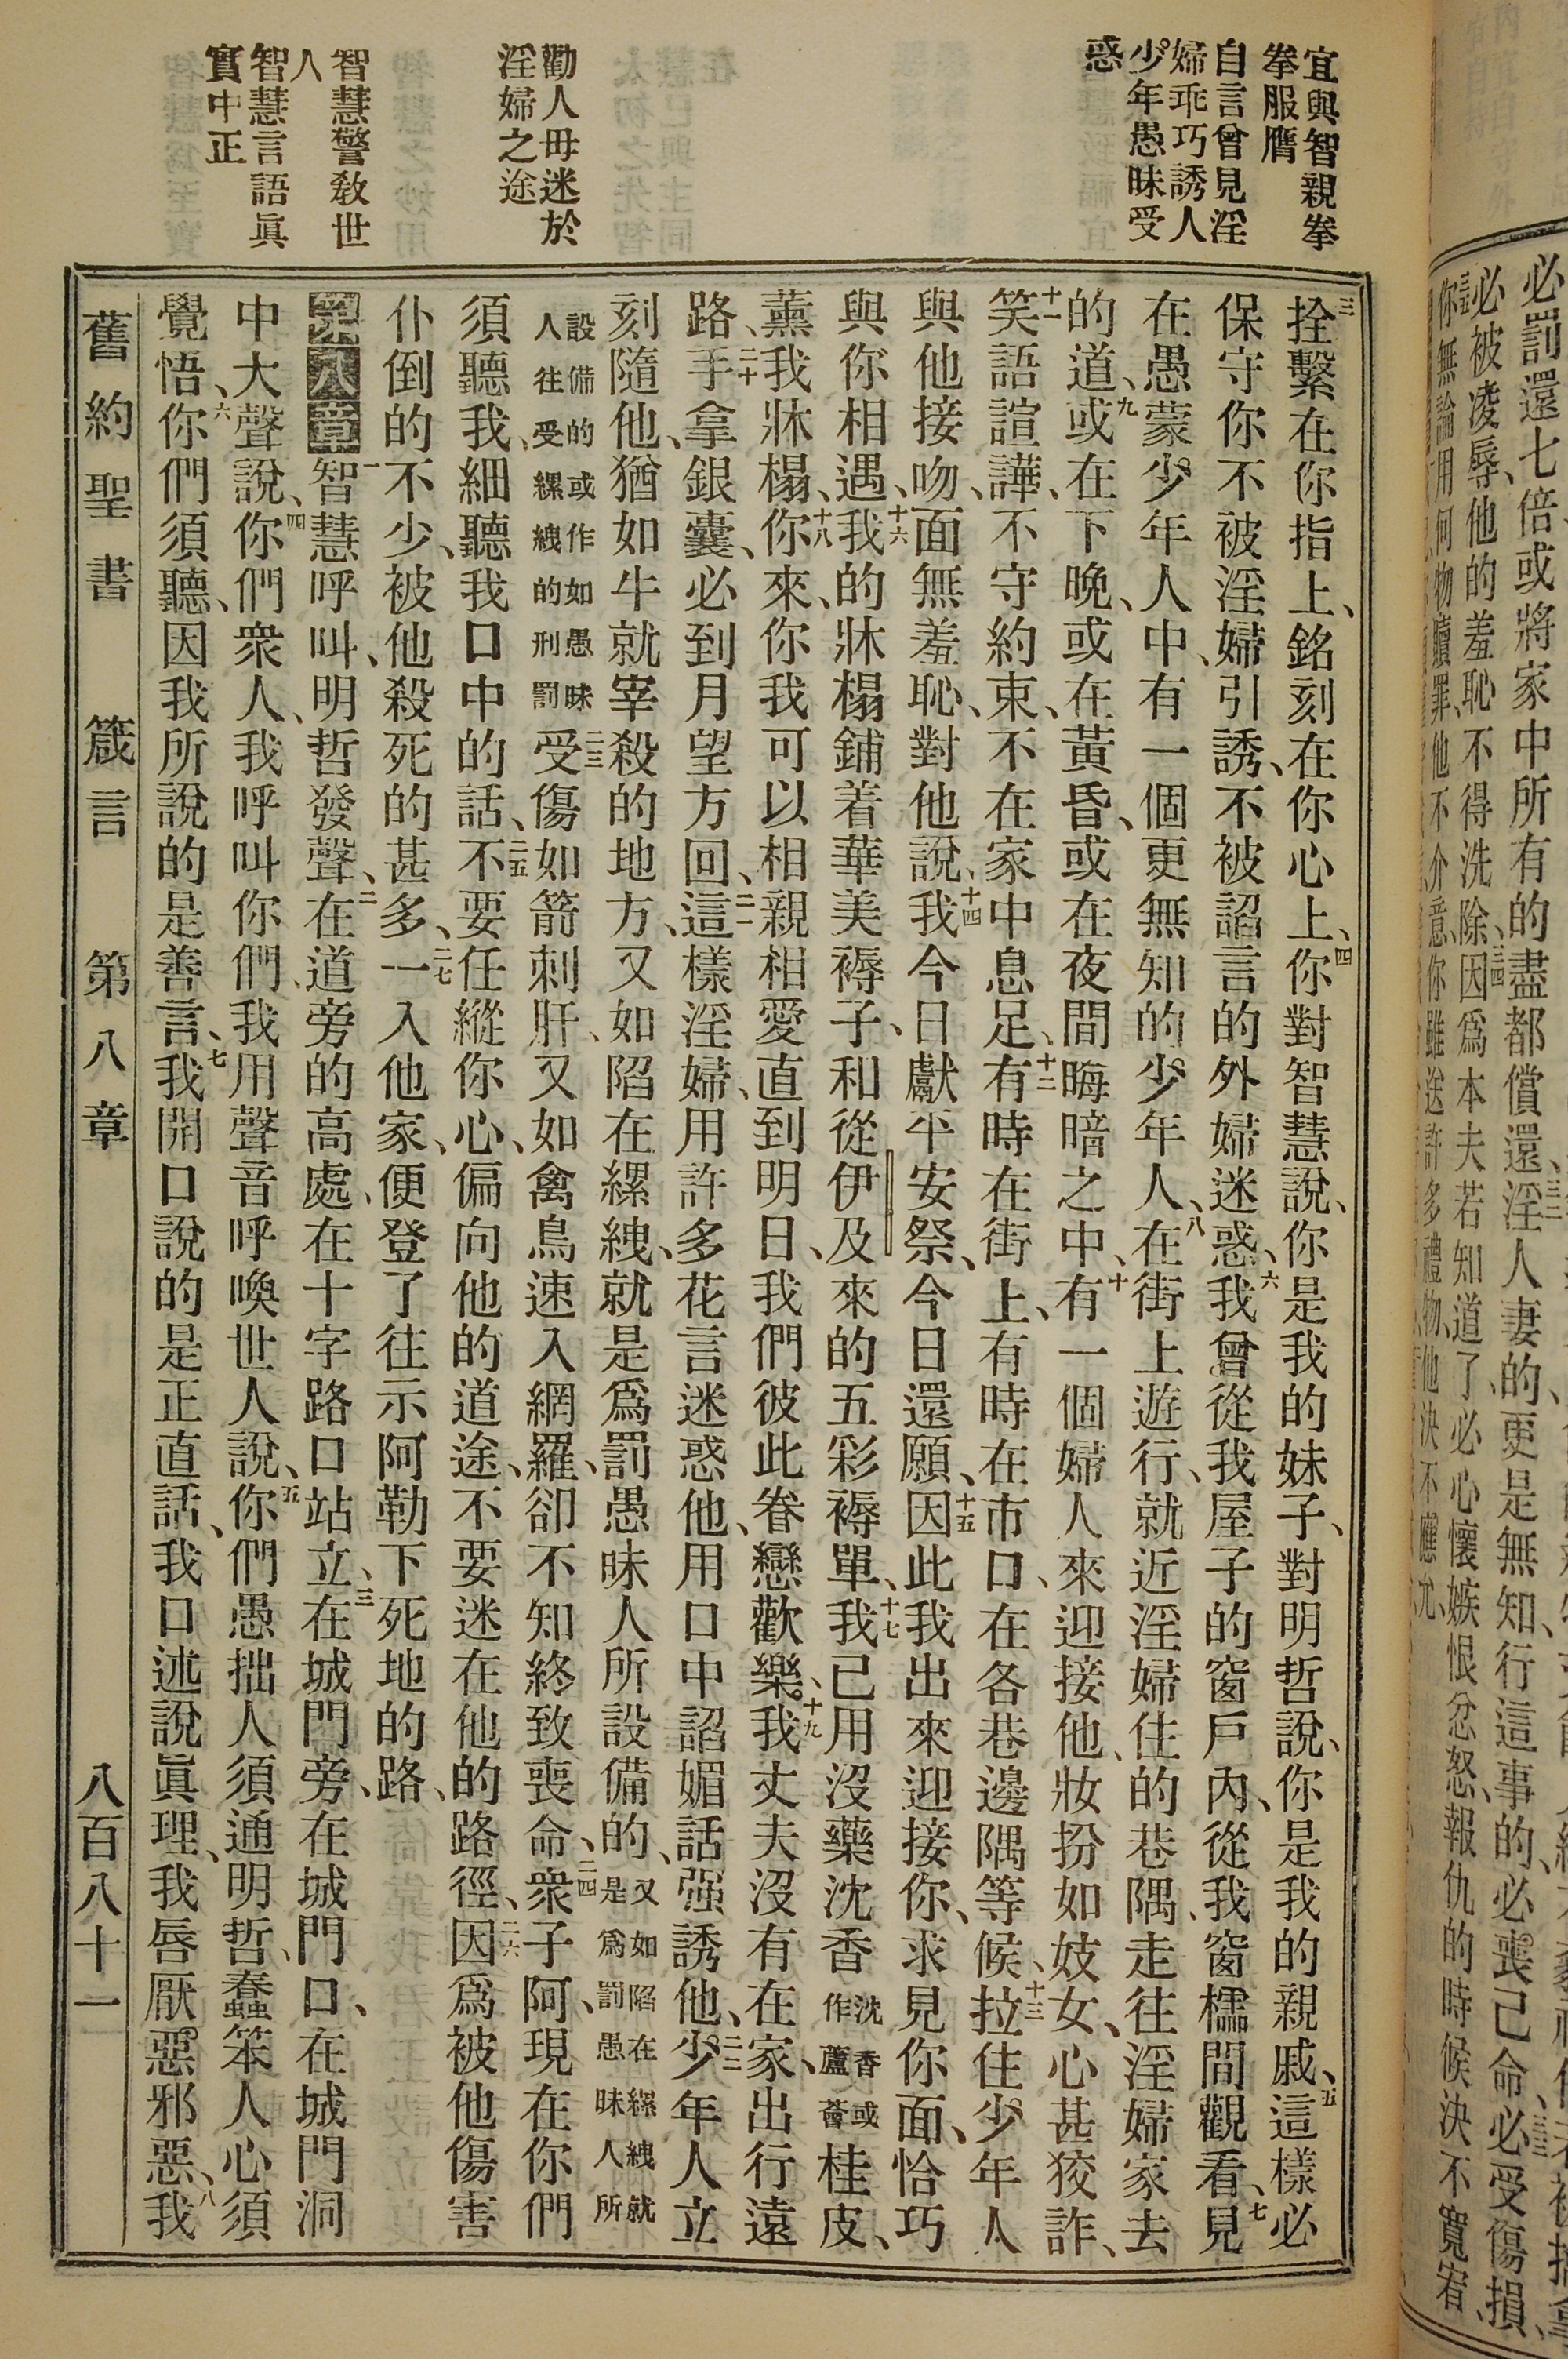 宜與智親拳
拳服膺
自言曾見淫
婦乖巧誘人
少年愚昧受
惑
勸人毋迷於
淫婦之途
智慧警教世
人
智慧言語眞
實中正
三拴繫在你指上、銘刻在你心上、四你對智慧說、你是我的妹子、對明哲說、你是我的親戚、五這樣必
保守你不被淫婦引誘、不被諂言的外婦迷惑、六我曾從我屋子的窗戶內、從我窗櫺間觀看、七見
在愚蒙少年人中、有一個更無知的少年人、八在街上遊行、就近淫婦住的巷隅、走往淫婦家去
的道、九或在下晚、或在黃昏、或在夜間晦暗之中、十有一個婦人來迎接他、妝扮如妓女、心甚狡詐、
十一笑語諠譁、不守約束、不在家中息足、十二有時在街上、有時在市口、在各巷邊隅等候、十三拉住少年人
與他接吻、面無羞恥、對他說、十四我今日獻平安祭、今日還願、十五因此我出來迎接你、求見你面、恰巧
與你相遇、十六我的牀榻鋪着華美褥子、和從伊及來的五彩褥單、十七我已用沒藥沈香沈香或作蘆薈桂皮、
薰我牀榻、十八你來、你我可以相親相愛直到明日、我們彼此眷戀歡樂、十九我丈夫沒有在家、出行遠
路、二十手拿銀囊、必到月望方回、二一這樣淫婦、用許多花言迷惑他、用口中諂媚話强誘他、二二少年人立
刻隨他、猶如牛就宰殺的地方、又如陷在縲絏、就是爲罰愚昧人所設備的、又如陷在縲絏就是爲罰愚昧人所
設備的或作如愚昧人往受縲絏的刑罰二三受傷如箭刺肝、又如禽鳥速入網羅、卻不知終致喪命、二四衆子阿、現在你們
須聽我、細聽我口中的話、二五不要任縱你心、偏向他的道途、不要迷在他的路徑、二六因爲被他傷害
仆倒的不少、被他殺死的甚多、二七一入他家、便登了往示阿勒下死地的路、
第八章一智慧呼叫、明哲發聲、二在道旁的高處、在十字路口站立、三在城門旁、在城門口、在城門洞
中大聲說、四你們衆人、我呼叫你們、我用聲音呼喚世人說、五你們愚拙人須通明哲、蠢笨人心須
覺悟、六你們須聽、因我所說的是善言、七我開口說的是正直話、我口述說眞理、我唇厭惡邪惡、八我
舊約聖書　箴言　第八章　八百八十一